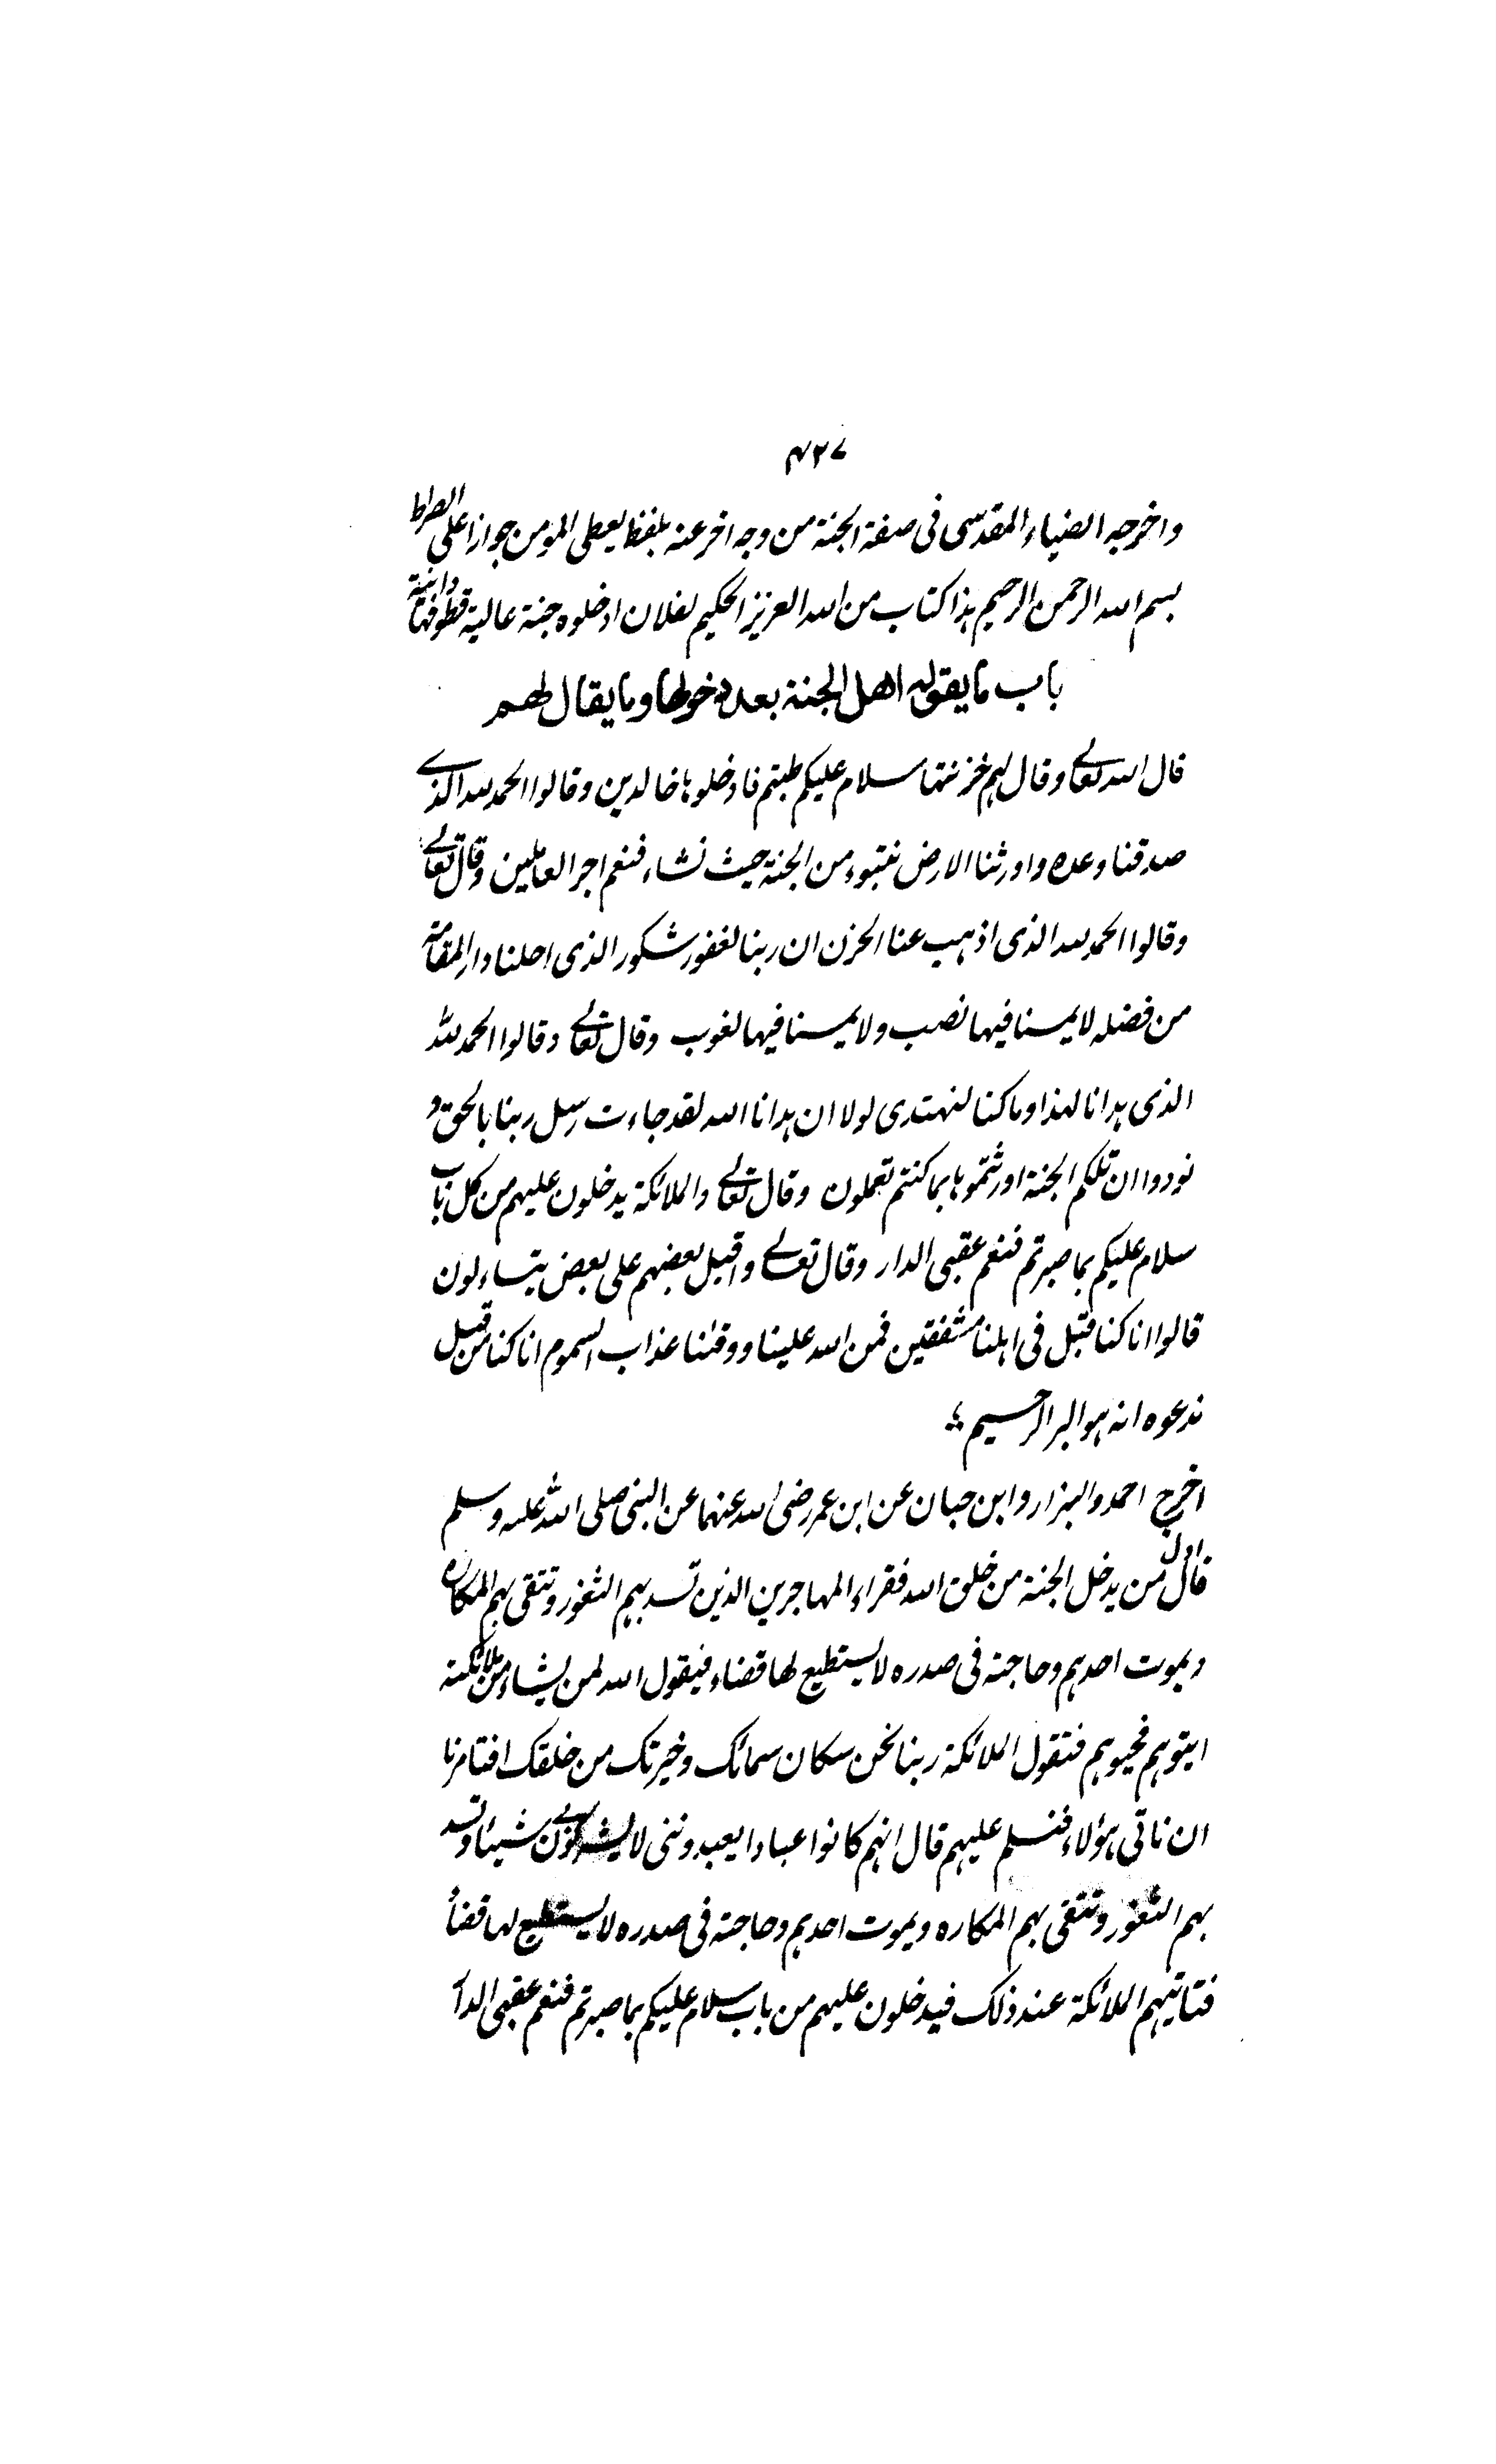 ۴۲۷
واخرجه الضياء المقدسی فی صفة الجنة من وجه اخر عنه بلفظ يعطی المومن جوازا علی الصراط
بسم الله الرحمن الرحيم هذا كتاب من الله العزيز الحكيم لفلان ادخلوه جنة عالية قطوفها دانية
باب ما يقوله اهل الجنة بعد دخولها وما يقال لهم
قال الله تعالے وقال لهم خزنتها سلام عليكم طبتم فادخلوها خالدين وقالوا الحمد لله الذے
صدقنا وعده واورثنا الارض نتبوء من الجنة حيث نشاء فنعم اجر العاملين وقال تعالے
وقالوا الحمد لله الذی اذهب عنا الحزن ان ربنا لغفور شكور الذی احلنا دار المقامة
من فضله لا يمسنا فيها نصب ولا يمسنا فيها لغوب وقال تعالے وقالوا الحمد لله
الذی هدانا لهذا وما كنا لنهتدی لولا ان هدانا الله لقد جاءت رسل ربنا بالحق و
نودوا ان تلكم الجنة اورثتموها بما كنتم تعملون وقال تعالے والملائكة يدخلون عليهم من كل باب
سلام عليكم بما صبرتم فنعم عقبی الدار وقال تعالے واقبل بعضهم علی بعض يتساءلون
قالوا انا كنا قبل فی اهلنا مشفقين فمن الله علينا ووقٰنا عذاب السموم انا كنا من قبل
ندعوه انه هو البر الرحيم
اخرج احمد والبزار وابن حبان عن ابن عمر رضی الله عنهما عن النبی صلی الله عليه وسلم
قال اول من يدخل الجنة من خلق الله فقراء المهاجرين الذين تسد بهم الثغور وتتقی بهم المكاره
ويموت احدهم وحاجته فی صدره لا يستطيع لها قضاء فيقول الله لمن يشاء من ملائكته
ايتوهم فحيوهم فتقول الملائكة ربنا نحن سكان سمائك وخيرتك من خلقك افتامرنا
ان ناتی هؤلاء فنسلم عليهم قال انهم كانوا عبادا يعبدوننی لا يشركون بے شيئا وتسد
بهم الثغور وتتقی بهم المكاره ويموت احدهم وحاجته فی صدره لا يستطيع لها قضاء
فتاتيهم الملائكة عند ذلك فيدخلون عليهم من باب سلام عليكم بما صبرتم فنعم عقبی الدار